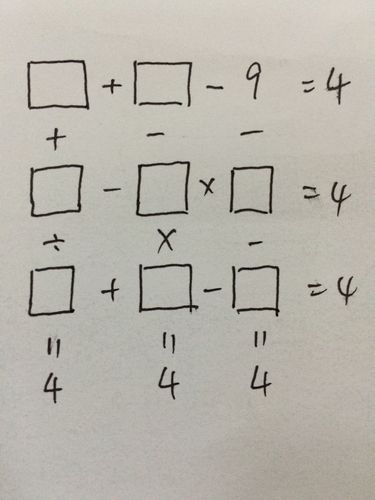 □ + □ - 9 = 4
+ - -
□ - □ × □ = 4
÷ × -
□ + □ - □ = 4
= = =
4 4 4